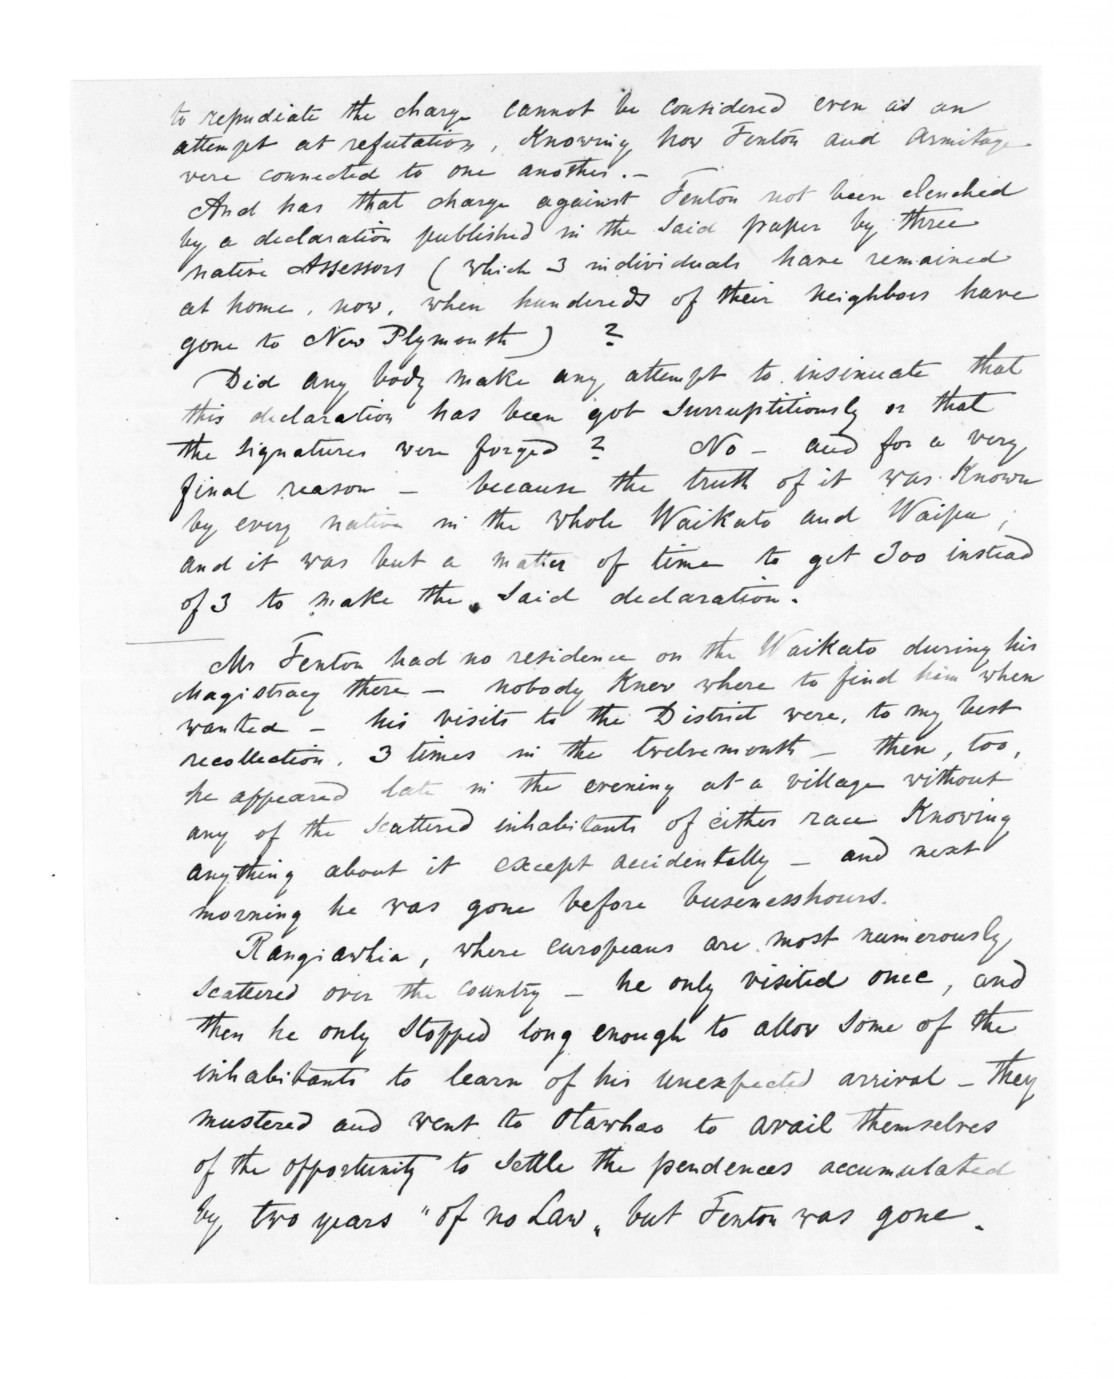 to repudiate the charge cannot be considered even as an
attempt at refutation, Knowing how Fenton and Armitage
were connected to one another. –
And has that charge against Fenton not been clenched
by a declaration published in the said paper by three
native Assessors ( which 3 individuals have remained
at home, now, when hundereds of their neighbors have
gone to New Plymouth ) ?
Did any body make any attempt to insinuate that
this declaration has been got surruptitiously or that
the signatures were forged ? No – and for a very
final reason – because the truth of it was Known
by every native in the whole Waikato and Waipa ,
and it was but a matter of time to get 300 instead
of 3 to make the said declaration.
Mr Fenton had no residence on the Waikato during his
Magistracy there – nobody Knew where to find him when
wanted – his visits to the District were, to my best
recollection, 3 times in the twelvemonth – then, too,
he appeared late in the evening at a village without
any of the scattered inhabitants of either race Knowing
anything about it except accidentally – and next
morning he was gone before busenesshours.
Rangiawhia, where europeans are most numerously
scattered over the country – he only visited once, and
then he only stopped long enough to allow some of the
inhabitants to learn of his unexpected arrival – they
mustered and went to Otawhao to avail themselves
of the opportunity to settle the pendences accumulated
by two years "of no Law„ but Fenton was gone.